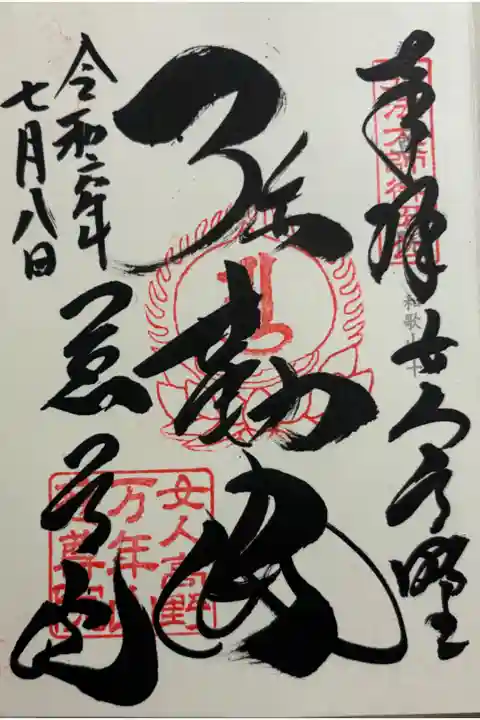 奉拝 女人高野
弥勒佛
慈尊院
令和六年
七月八日
和歌山
女人高野
万年山
慈尊院